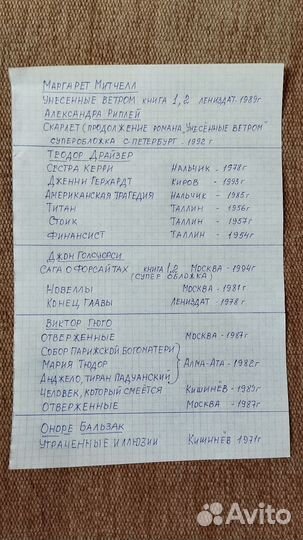 МАРГАРЕТ МИТЧЕЛЛ
УНЕСЕННЫЕ ВЕТРОМ КНИГА 1,2 ЛЕНИЗДАТ. 1989г
АЛЕКСАНДРА РИПЛЕЙ
СКАРЛЕТ (ПРОДОЛЖЕНИЕ РОМАНА „УНЕСЁННЫЕ ВЕТРОМ"
СУПЕРОБЛОЖКА С-ПЕТЕРБУРГ - 1992 г
ТЕОДОР ДРАЙЗЕР
СЕСТРА КЕРРИ НАЛЬЧИК - 1978г
ДЖЕННИ ГЕРХАРДТ КИРОВ - 1993г
АМЕРИКАНСКАЯ ТРАГЕДИЯ НАЛЬЧИК - 1985г
ТИТАН ТАЛЛИН - 1956г
СТОИК ТАЛЛИН - 1957г
ФИНАНСИСТ ТАЛЛИН - 1954г
ДЖОН ГОЛСУОРСИ
САГА О ФОРСАЙТАХ КНИГА 1,2 МОСКВА - 1994г
(СУПЕР ОБЛОЖКА)
НОВЕЛЛЫ МОСКВА - 1981г
КОНЕЦ ГЛАВЫ ЛЕНИЗДАТ - 1978 г
ВИКТОР ГЮГО
ОТВЕРЖЕННЫЕ МОСКВА - 1987г
СОБОР ПАРИЖСКОЙ БОГОМАТЕРИ
МАРИЯ ТЮДОР АЛМА-АТА - 1982г
АНДЖЕЛО, ТИРАН ПАДУАНСКИЙ
ЧЕЛОВЕК, КОТОРЫЙ СМЕЁТСЯ КИШИНЁВ - 1989г
ОТВЕРЖЕННЫЕ МОСКВА - 1987г
ОНОРЕ БАЛЬЗАК
УТРАЧЕННЫЕ ИЛЛЮЗИИ КИШИНЁВ 1971г
Avito